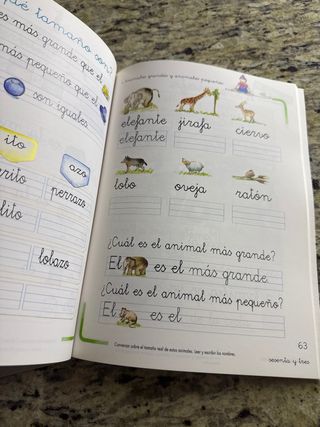 qué tamaño son?
es más grande que el
más pequeño que el
son iguales
ito
azo
perrazo
lobazo
Animales grandes y animales pequeños
elefante jirafa ciervo
elefante
lobo oveja ratón
¿Cuál es el animal más grande?
El es el más grande.
¿Cuál es el animal más pequeño?
El es el
Conversar sobre el tamaño real de estos animales. Leer y escribir los nombres.
63
sesenta y tres